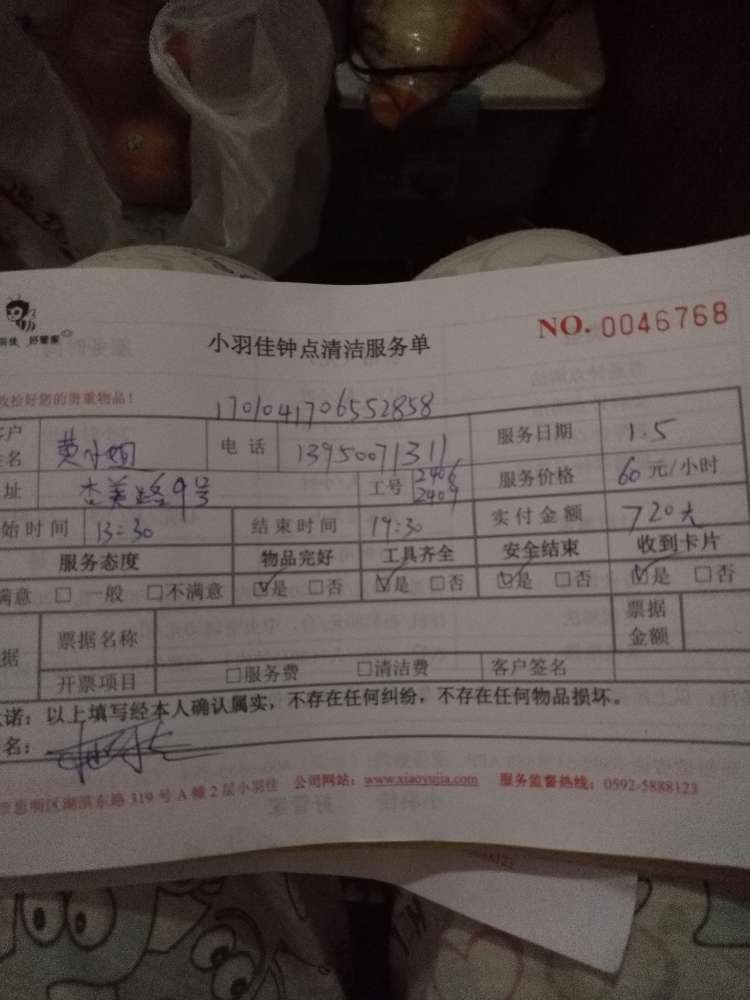 羽佳 好管家
小羽佳钟点清洁服务单
NO. 0046768
收拾好您的贵重物品!
1701041706552858
客户
姓名 黄小姐 电话 13950071311 服务日期 1.5
址 杏美路9号 工号 2406 2409 服务价格 60元/小时
始时间 13:30 结束时间 19:30 实付金额 720大
服务态度 物品完好 工具齐全 安全结束 收到卡片
满意 □ 一般 □不满意 ☑是 □否 ☑是 □否 ☑是 □否 ☑是 □否
据 票据名称 票据金额
开票项目 □服务费 □清洁费 客户签名
诺：以上填写经本人确认属实，不存在任何纠纷，不存在任何物品损坏。
名：
思明区湖滨东路 319 号 A 幢 2 层小羽佳 公司网站：www.xiaoyujia.com 服务监督热线：0592-5888123